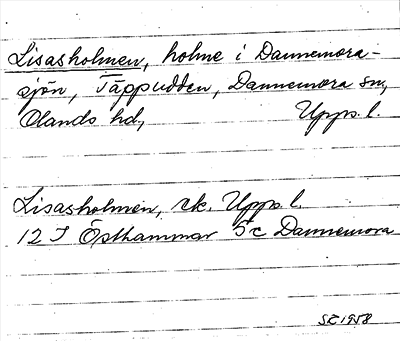 Lisasholmen, holme i Dannemora-
sjön, Täppudden, Dannemora sn,
Olands hd, Upps. l.
Lisasholmen, rk. Upps. l.
12 I Östhammar 5c Dannemora
SE 1958